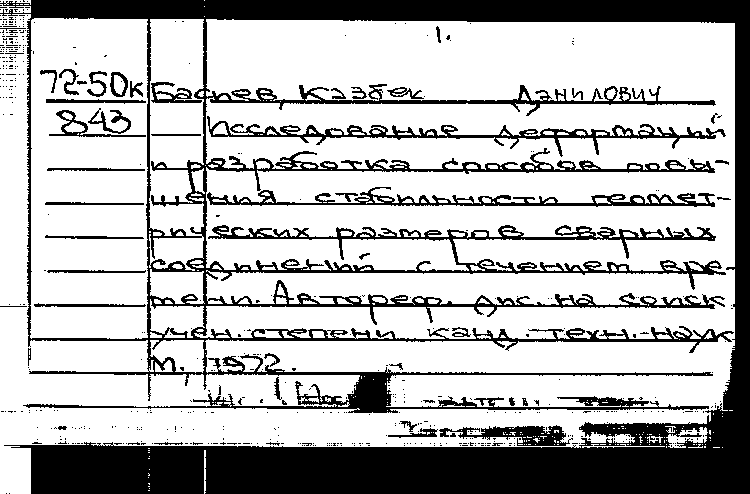 1.
72-50к Басиев, Казбек Данилович
843 Исследование деформаций
и разработка способов повы-
шения стабильности геомет-
рических размеров сварных
соединений с течением вре-
мени. Автореф. дис. на соиск
учен. степени канд. техн. наук
М., 1972.